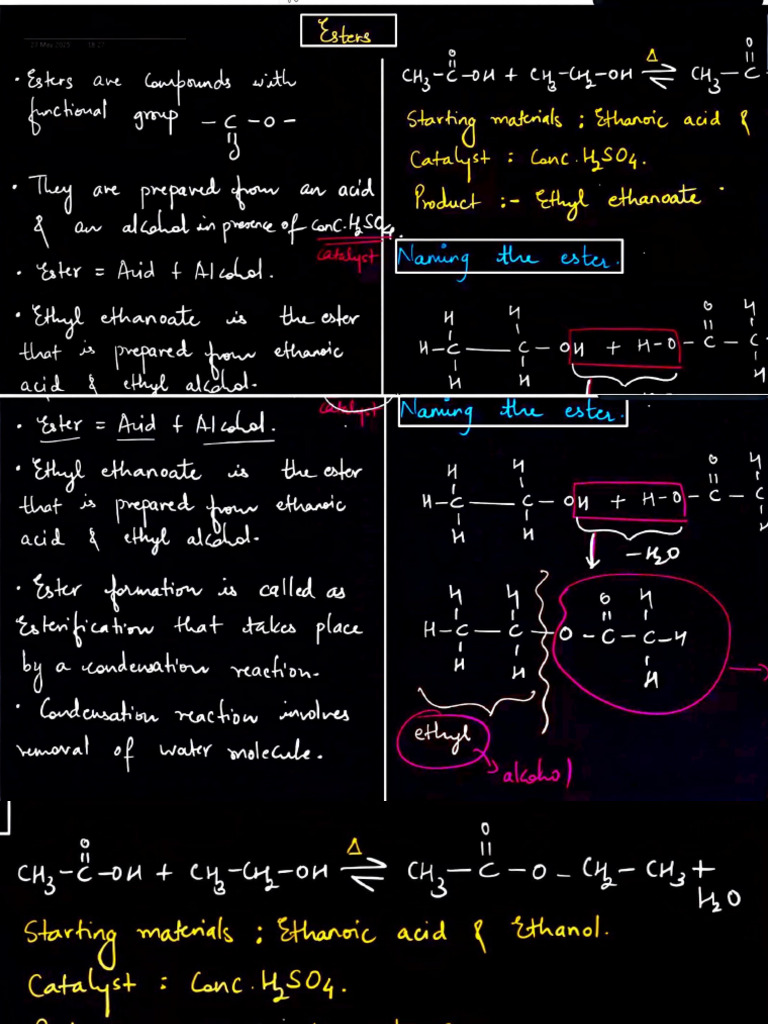 Esters
27 May 2025 18:27
• Esters are compounds with
functional group – C – O –
||
O
• They are prepared from an acid
& an alcohol in presence of Conc. H2SO4.
catalyst
• Ester = Acid + Alcohol.
• Ethyl ethanoate is the ester
that is prepared from ethanoic
acid & ethyl alcohol.
O
||
CH3–C–OH + CH3–CH2–OH ⇌ CH3–C
Δ
O
||
Starting materials : Ethanoic acid &
Catalyst : Conc. H2SO4.
Product :- Ethyl ethanoate
Naming the ester.
H H O H
H–C–C–OH + H–O–C–C
H H H
• Ester = Acid + Alcohol.
catalyst
• Ethyl ethanoate is the ester
that is prepared from ethanoic
acid & ethyl alcohol.
• Ester formation is called as
Esterification that takes place
by a condensation reaction.
• Condensation reaction involves
removal of water molecule.
Naming the ester.
H H O H
H–C–C–OH + H–O–C–C
H H H
–H2O
H H O H
H–C–C–O–C–C–H
H H H
ethyl
alkohol
O Δ O
CH3–C–OH + CH3–CH2–OH ⇌ CH3–C–O–CH2–CH3 +
H2O
Starting materials : Ethanoic acid & Ethanol.
Catalyst : Conc. H2SO4.